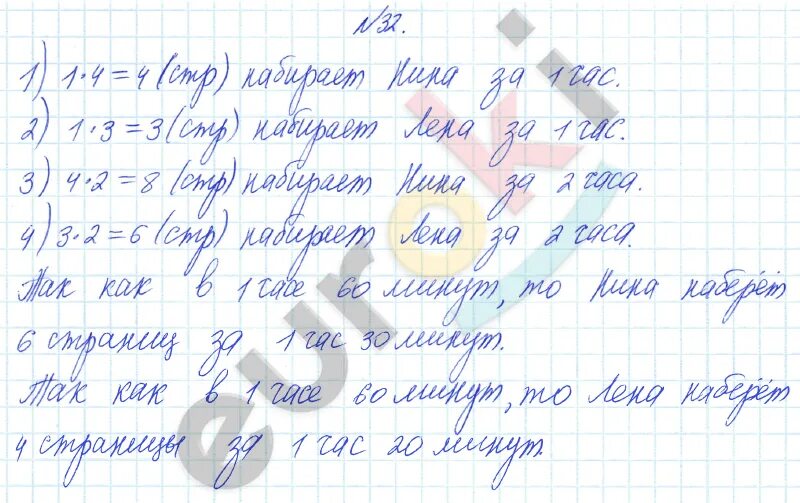 №32.
1) 1·4=4 (стр) набирает Нина за 1 час.
2) 1·3=3 (стр) набирает Лена за 1 час.
3) 4·2=8 (стр) набирает Нина за 2 часа.
4) 3·2=6 (стр) набирает Лена за 2 часа.
Так как в 1 часе 60 минут, то Нина наберёт
6 страниц за 1 час 30 минут.
Так как в 1 часе 60 минут, то Лена наберёт
4 страницы за 1 час 20 минут.
euroki